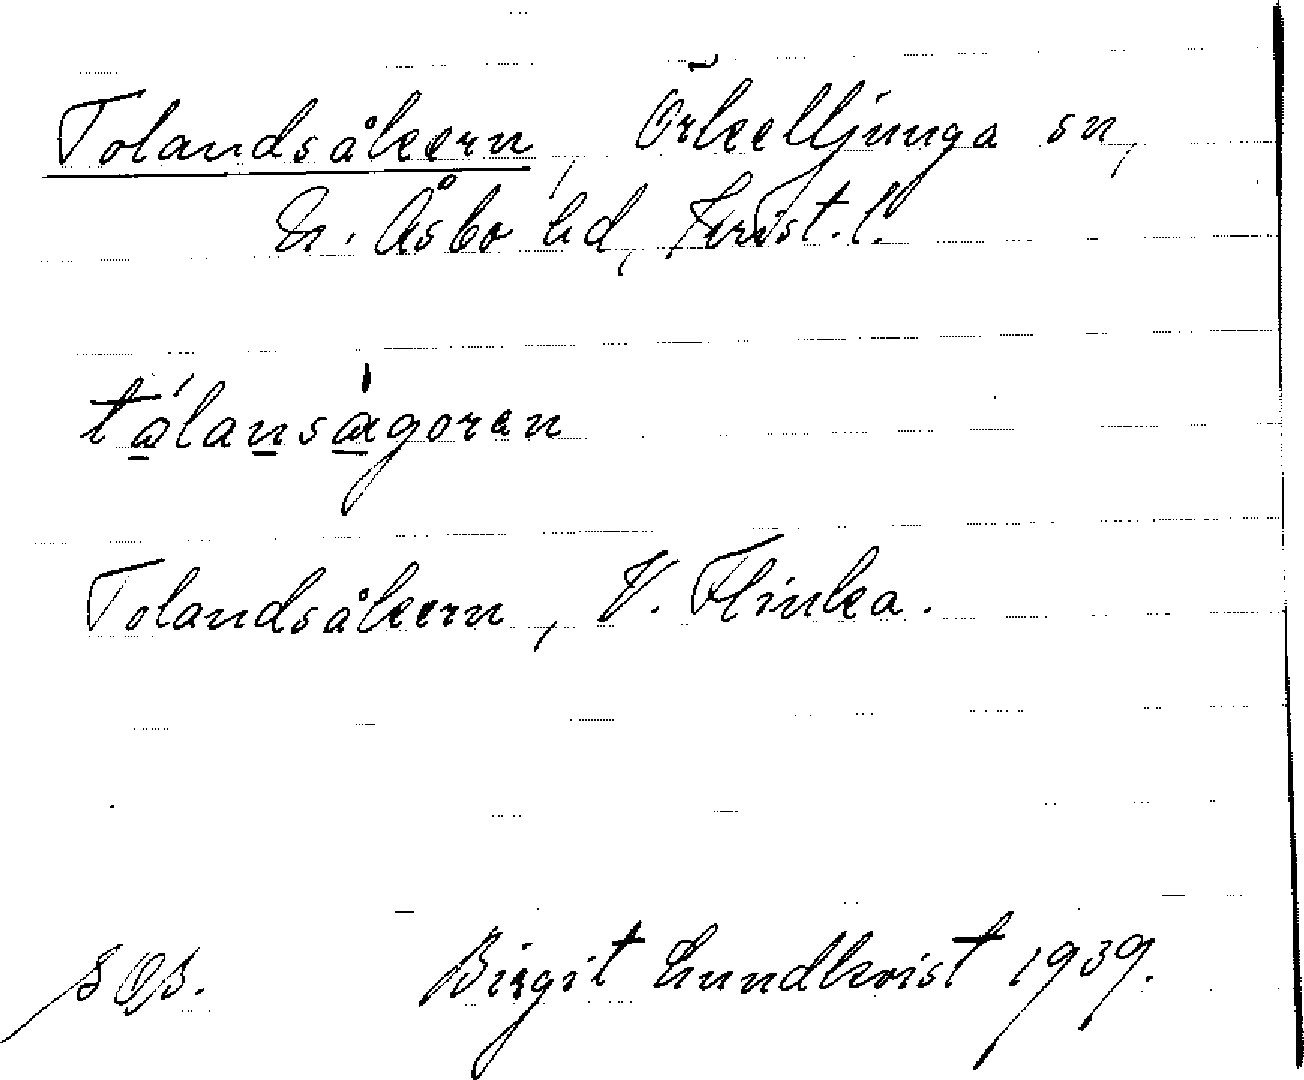 Tolandsåkern, Örkelljunga sn,
N. Åsbo hd, Krist. l.
tålansågoran
Tolandsåkern, V. Flinka.
Birgit Lundkvist 1939.